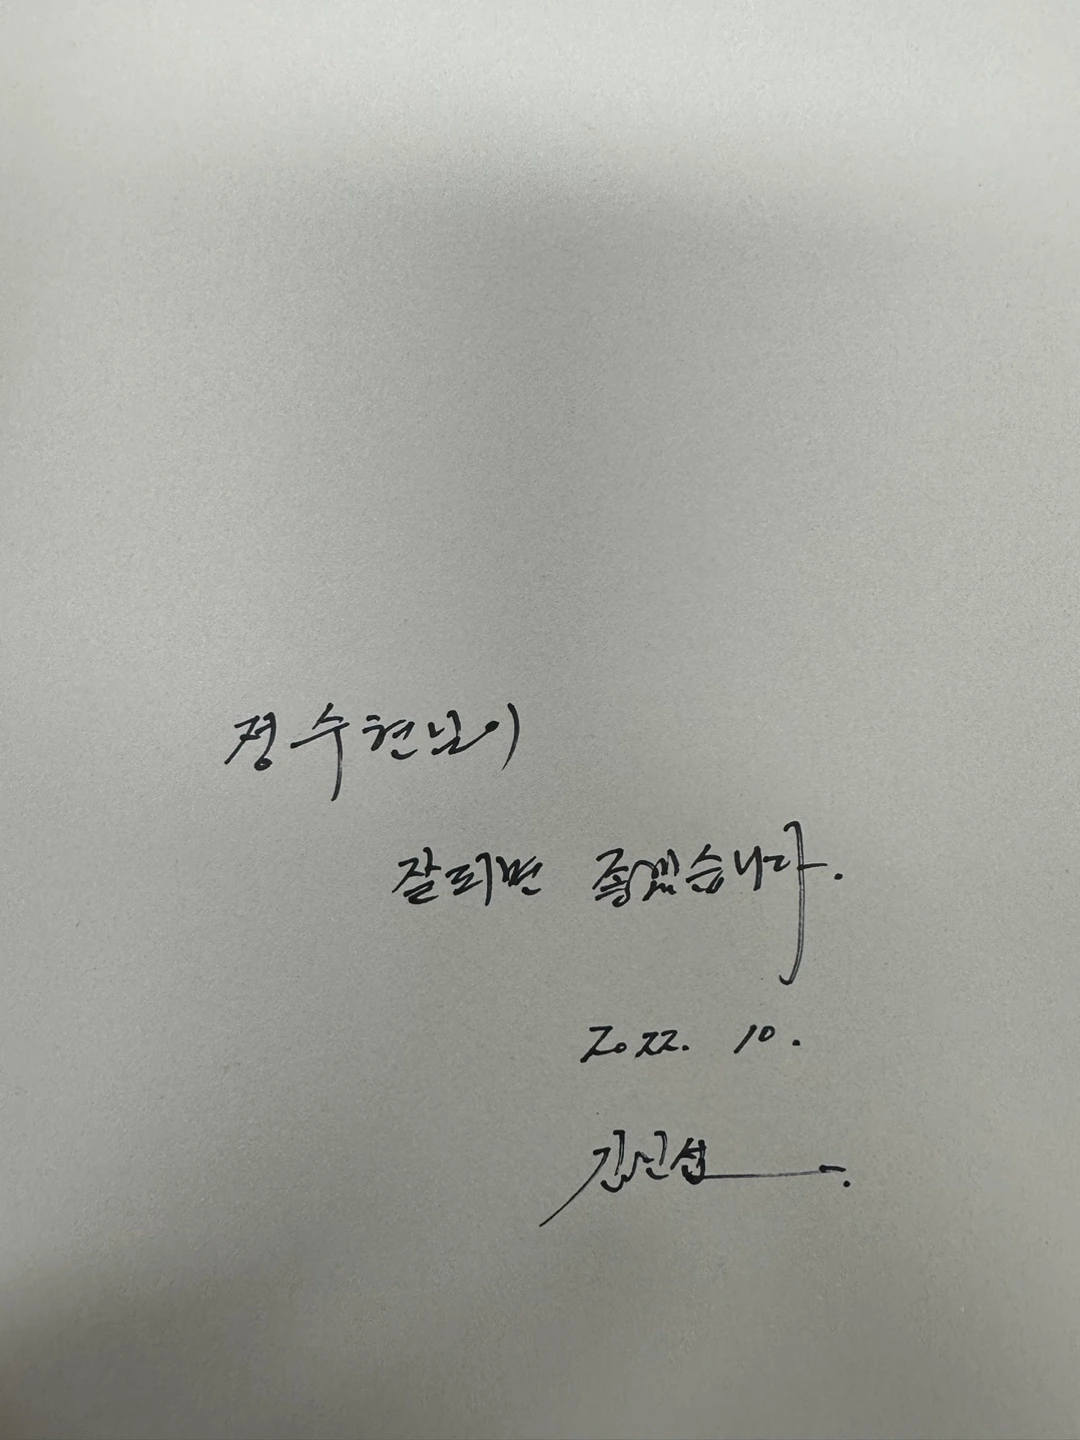 정수현님이
잘되면 좋겠습니다.
2022. 10.
김민섭